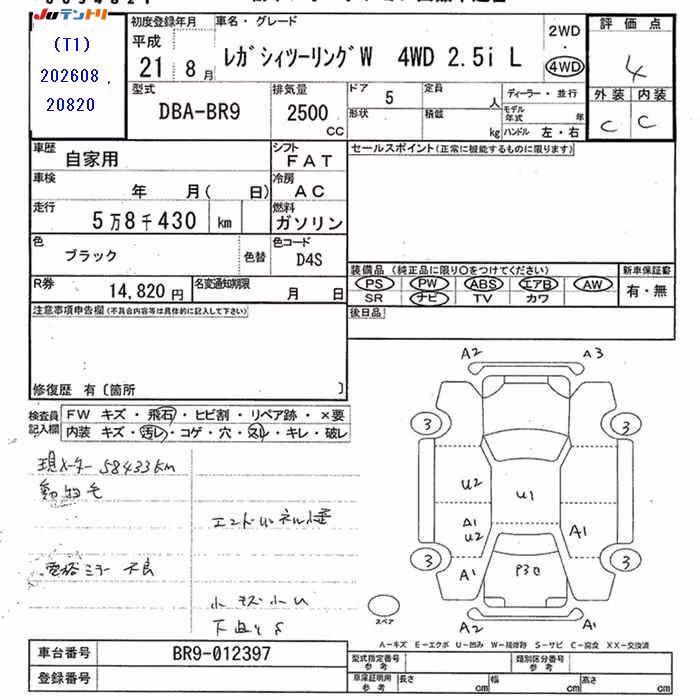 Juテントリ
(T1)
202608 ,
20820
初度登録年月
平成
21 8 月
車名・グレード
レガシィツーリングW 4WD 2.5i L
2WD
・
4WD
評価点
4
外装 内装
C C
型式
DBA-BR9
排気量
2500
CC
ドア
5
定員
人
形状
積載
kg
ディーラー・並行
モデル年式 年
ハンドル 左・右
車歴
自家用
シフト
FAT
車検
年 月( 日)
冷房
AC
走行
5万8千430 km
燃料
ガソリン
色
ブラック
色替
色コード
D4S
R券
14,820 円
名変通知期限
月 日
セールスポイント(正常に機能するものに限ります)
装備品(純正品に限り○をつけてください)
PS PW ABS エアB AW
SR ナビ TV カワ
新車保証書
有・無
後日品
注意事項申告欄(不具合内容等は具体的に記入して下さい)
修復歴 有〔箇所 〕
検査員記入欄
FW キズ・飛石・ヒビ割・リペア跡・×要
内装 キズ・汚レ・コゲ・穴・スレ・キレ・破レ
現メーター 58433km
動物毛
ミラー 不良
小キズ小U
A2 A3
3 3
U2 U1
A1
U2 A1
3 3
A1
A2 A1
スペア
A-キズ E-エクボ U-凹み W-補修跡 S-サビ C-腐食 XX-交換済
車台番号
BR9-012397
登録番号
型式指定番号 参考
類別区分番号 参考
車庫証明用 参考
長さ cm
幅 cm
高さ cm